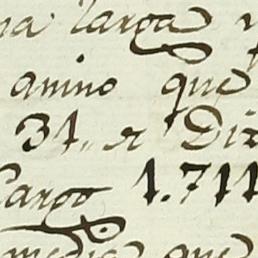 na larga
anino que
31,, de Di
Cargo 1.711
media que